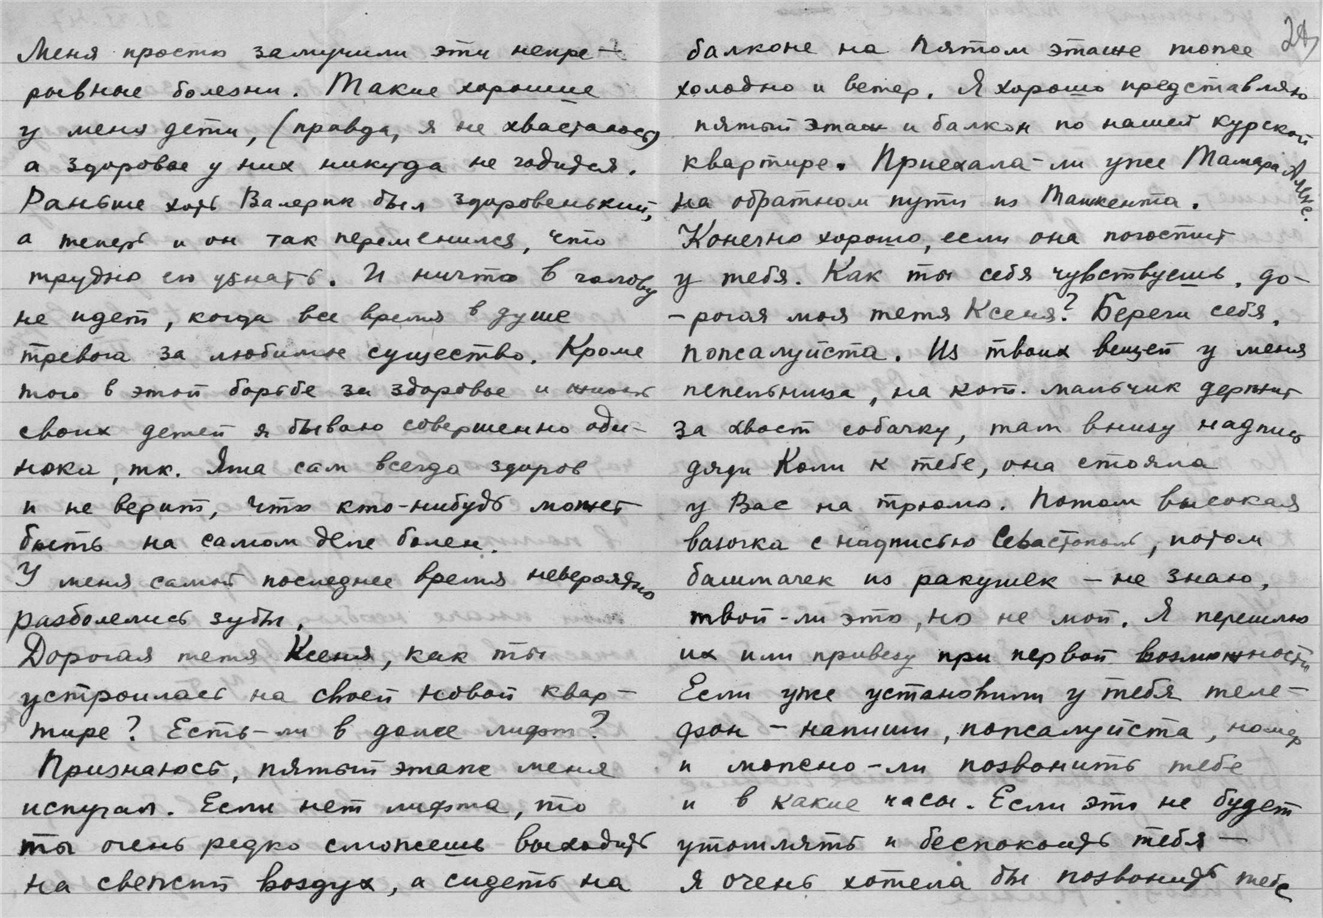 Меня просто замучили эти непре-
рывные болезни. Такие хорошие
у меня дети, (правда, я не хвастаюсь)
а здоровье у них никуда не годится.
Раньше хоть Валерик был здоровенький,
а теперь и он так переменился, что
трудно его узнать. И ничто в голову
не идет, когда все время в душе
тревога за любимое существо. Кроме
того в этой борьбе за здоровье и жизнь
своих детей я бываю совершенно оди-
нока, т.к. Яша сам всегда здоров
и не верит, что кто-нибудь может
быть на самом деле болен.
У меня самой последнее время невероятно
разболелись зубы.
Дорогая тетя Ксеня, как ты
устроилась на своей новой квар-
тире? Есть-ли в доме лифт?
Признаюсь, пятый этаж меня
испугал. Если нет лифта, то
ты очень редко сможешь выходить
на свежий воздух, а сидеть на
24)
балконе на пятом этаже тоже
холодно и ветер. Я хорошо представляю
пятый этаж и балкон по нашей курской
квартире. Приехала-ли уже Тамара Алекс.
на обратном пути из Ташкента.
Конечно хорошо, если она погостит
у тебя. Как ты себя чувствуешь, до-
-рогая моя тетя Ксеня? Береги себя,
пожалуйста. Из твоих вещей у меня
пепельница, на кот. мальчик держит
за хвост собачку, там внизу надпись
дяди Коли к тебе, она стояла
у Вас на трюмо. Потом высокая
вазочка с надписью Севастополь, потом
башмачек из ракушек - не знаю,
твой-ли это, но не мой. Я перешлю
их или привезу при первой возможности
Если уже установили у тебя теле-
фон - напиши, пожалуйста, номер
и можно-ли позвонить тебе
и в какие часы. Если это не будет
утомлять и беспокоить тебя -
я очень хотела бы позвонить тебе